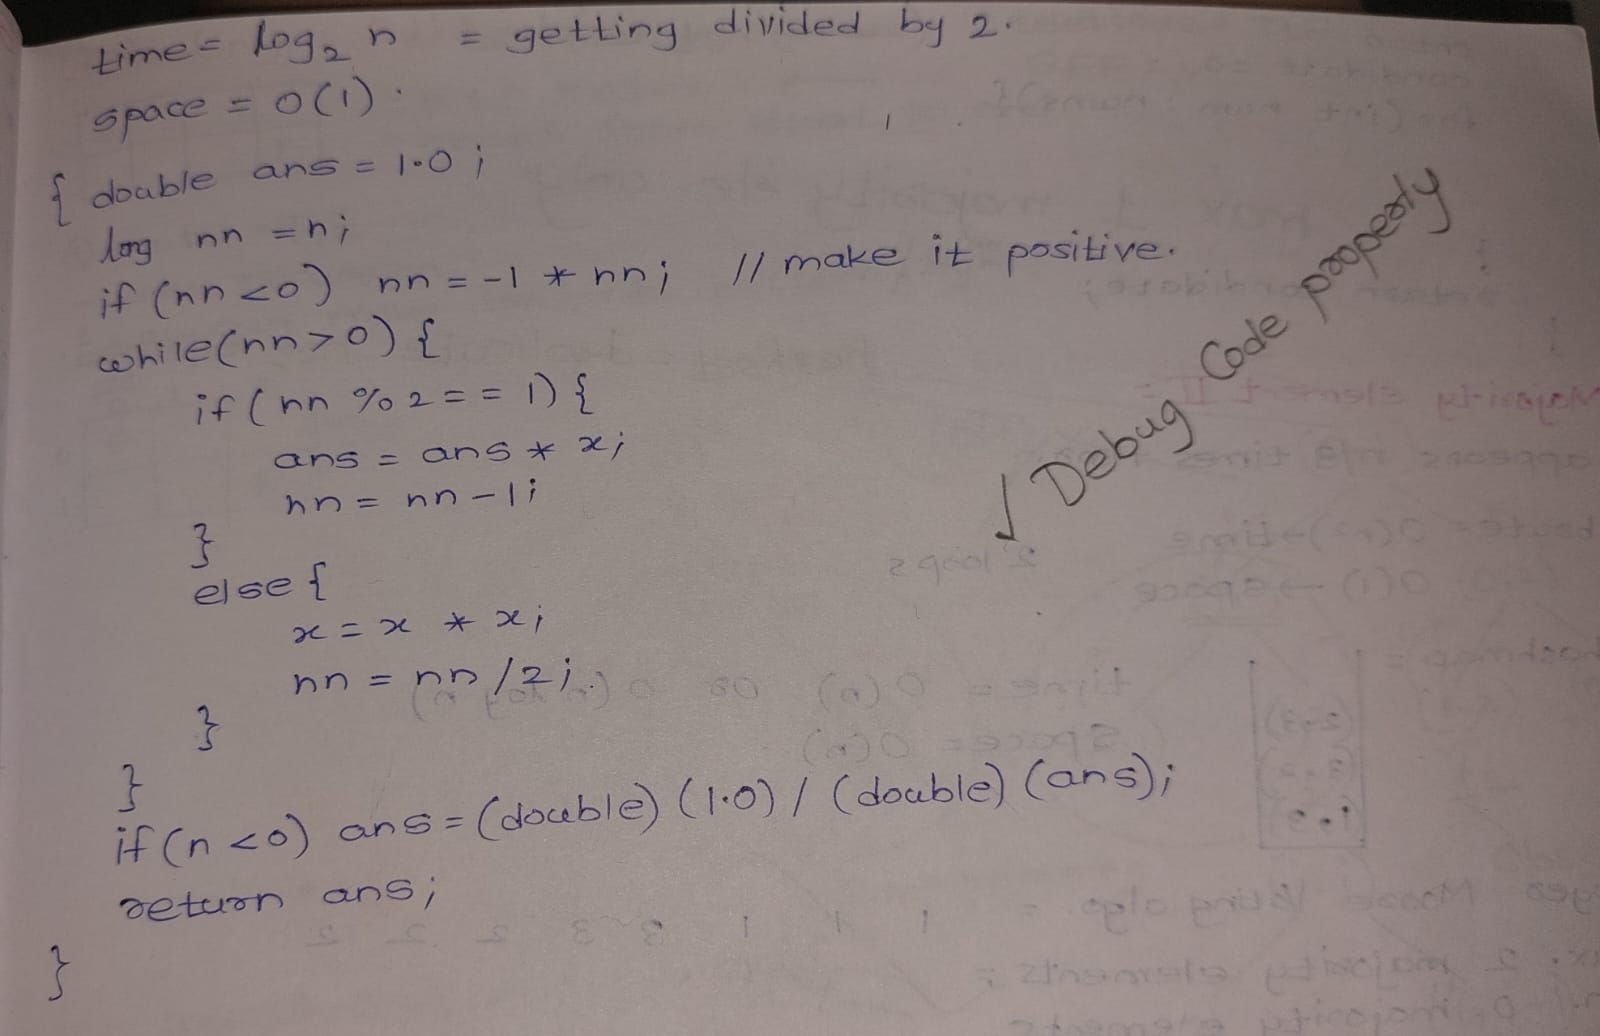 time = log₂ n = getting divided by 2.
space = O(1).
{ double ans = 1.0 ;
long nn = n;
if (nn <0) nn = -1 * nn; // make it positive.
while(nn > 0) {
if ( nn % 2 == 1) {
ans = ans * x;
nn = nn - 1;
}
else {
x = x * x;
nn = nn /2;
}
}
if (n <0) ans = (double) (1.0) / (double) (ans);
return ans;
}
✓ Debug Code properly